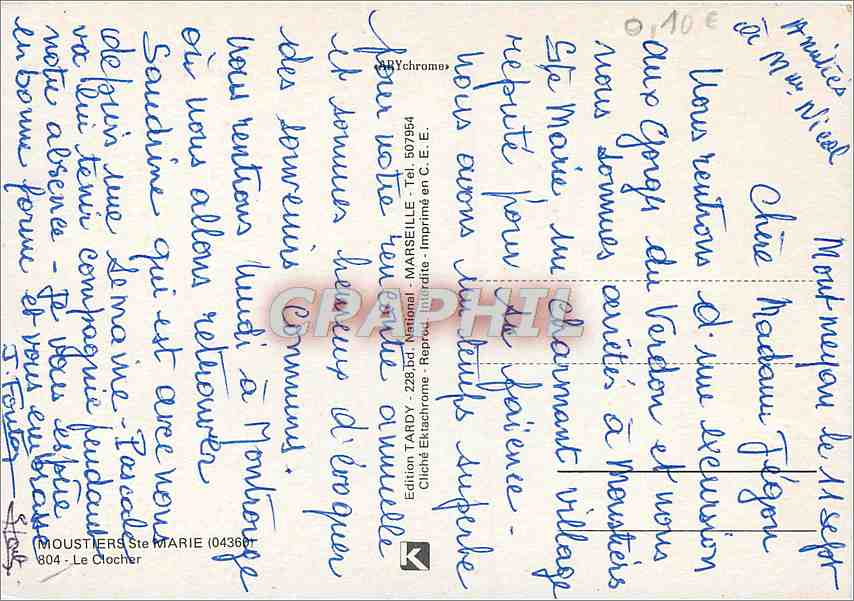 0,10 €
Amitiés
à Mme Nicol
Montmeyan le 11 Sept
Chère Madame Jégou
Nous rentrons d'une excursion
aux Gorges du Verdon et nous
nous sommes arrêtés à Moustiers
Ste Marie, un charmant village
réputé pour sa faïence -
Nous avons un temps superbe
pour notre rencontre annuelle
et sommes heureux d'évoquer
des souvenirs communs.
Nous rentrons lundi à Montrouge
où nous allons retrouver
Sandrine qui est avec nous
depuis une semaine - Pascale
va lui tenir compagnie pendant
notre absence - Je vous espère
en bonne forme et vous embrasse
«ARYchrome»
Edition TARDY - 228,bd. National - MARSEILLE - Tel. 507954
Cliché Ektachrome - Reprod. Interdite - Imprimé en C. E. E.
K
MOUSTIERS Ste MARIE (04360)
804 - Le Clocher
CPAPHIL